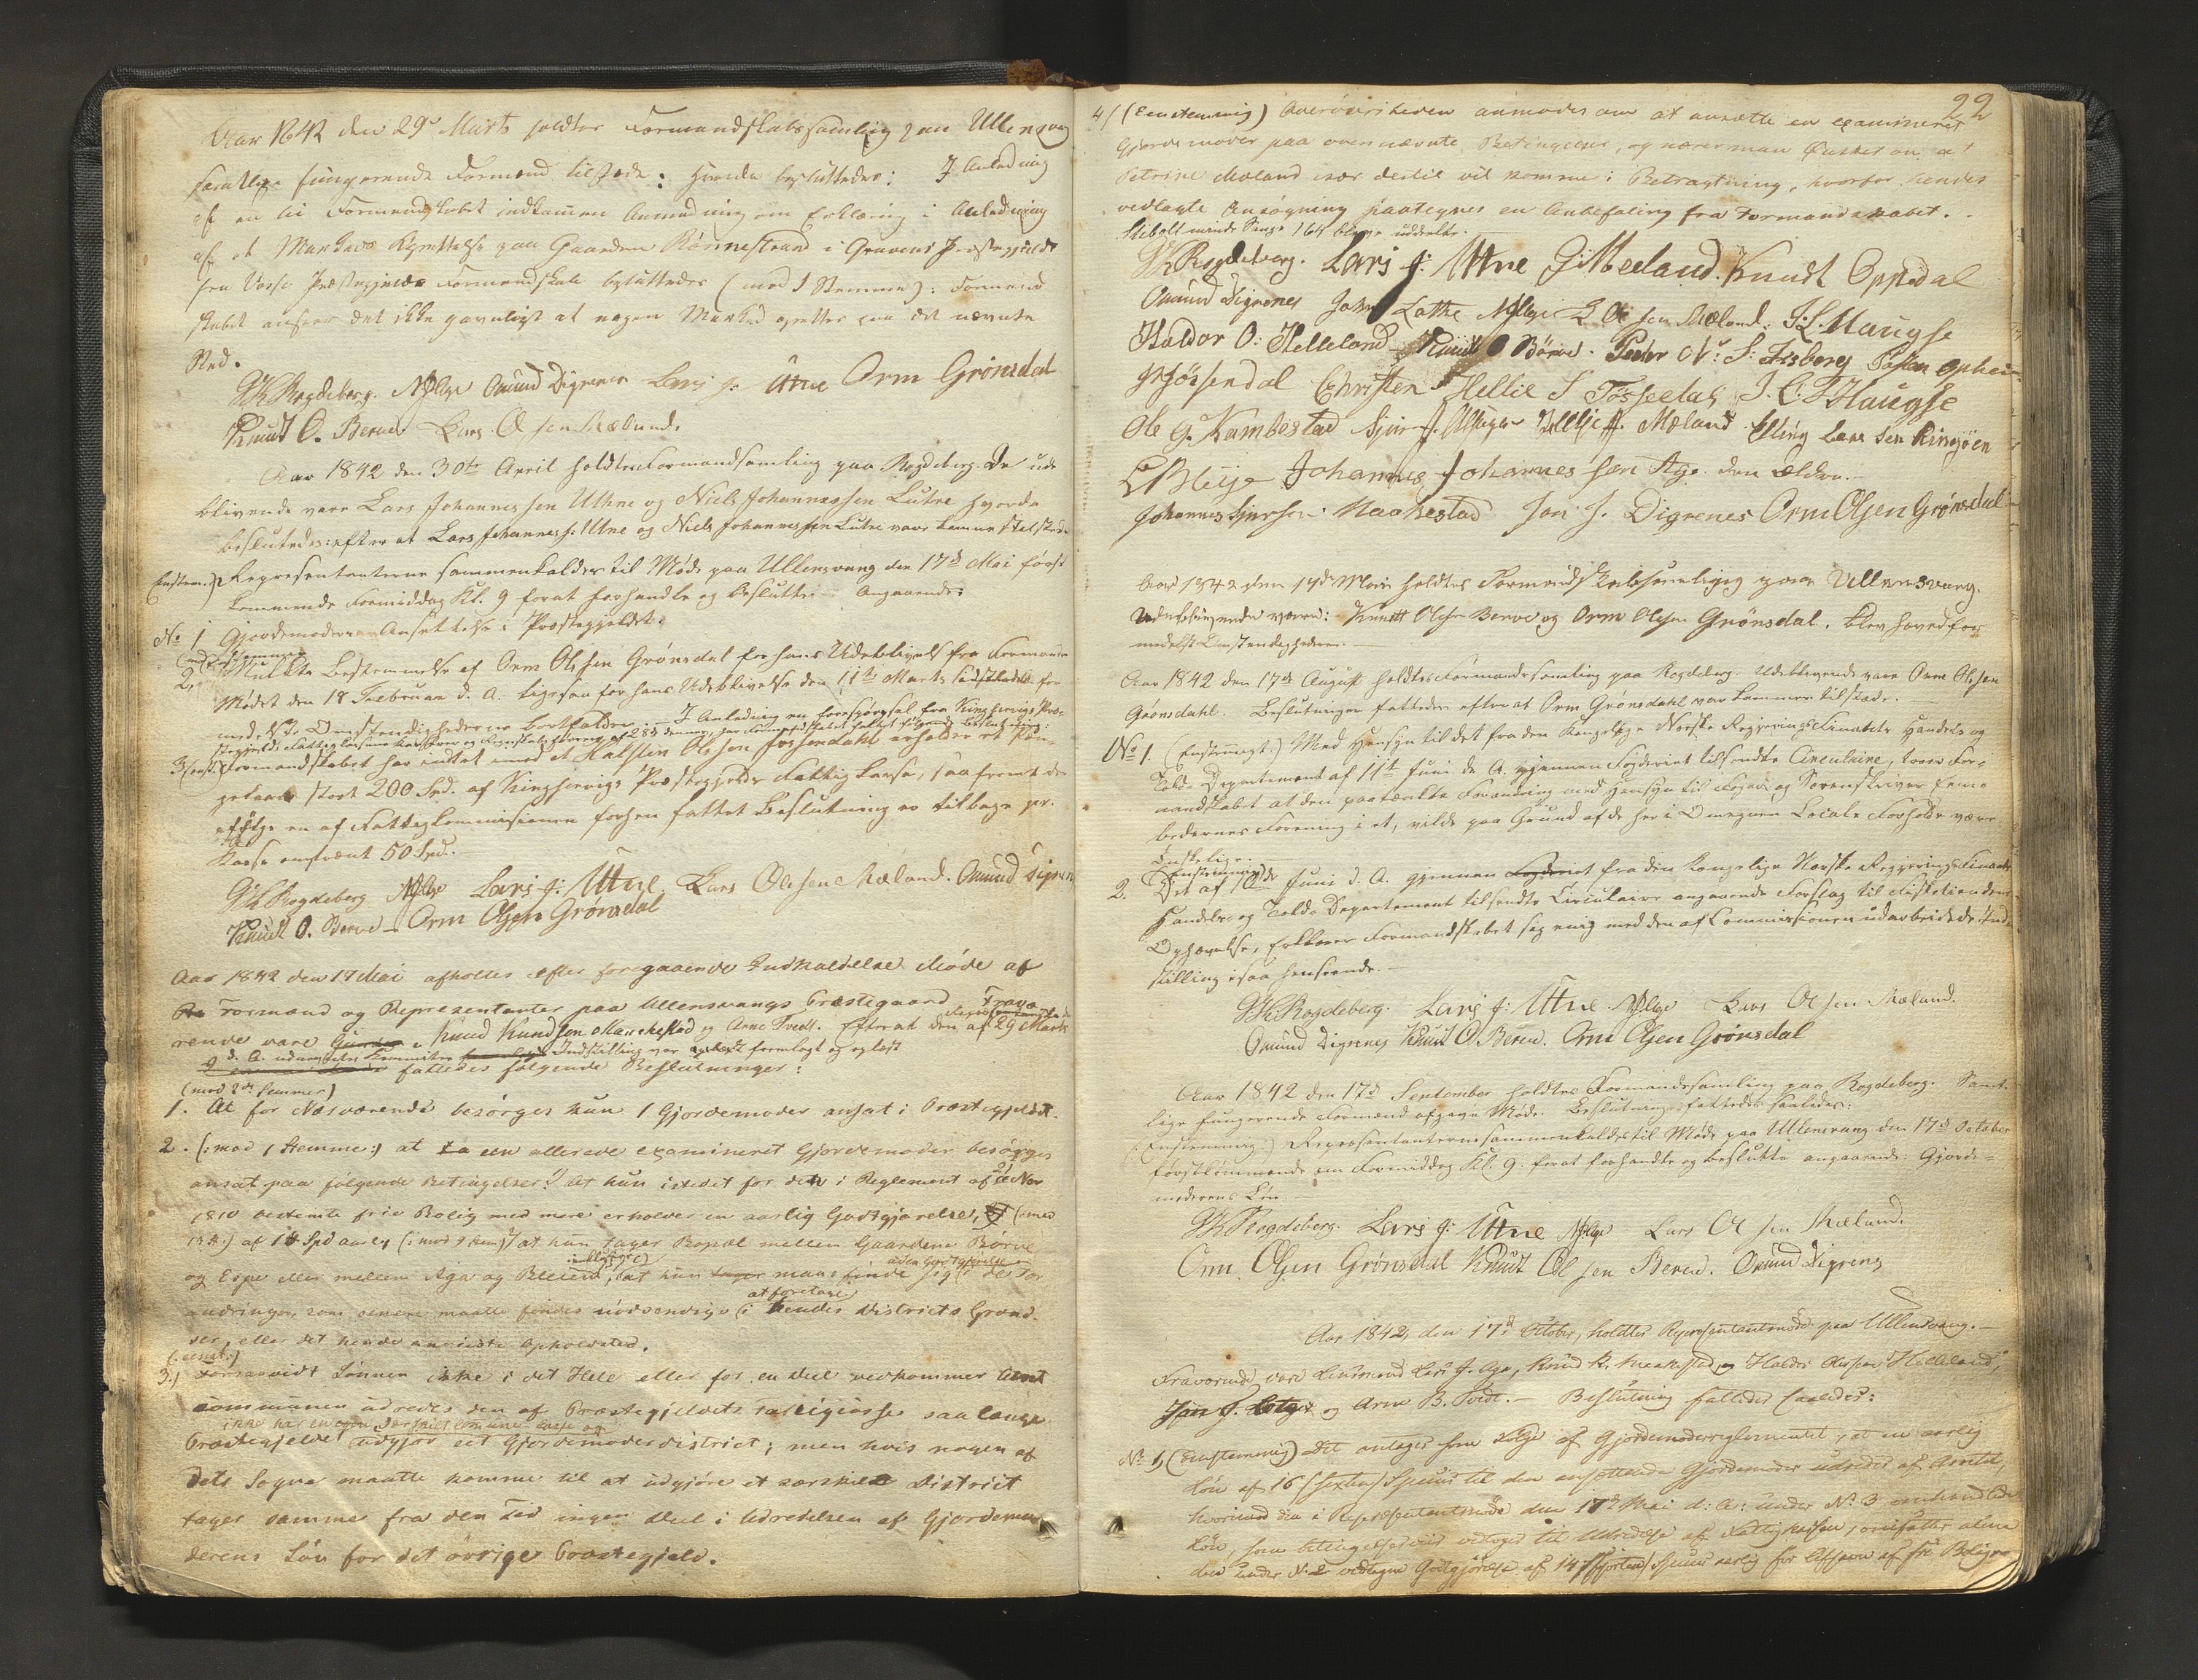 Aar 1842 den 29de Marts holdtes Formandskabssamling paa Ullensvang
samtlige fungerende Formænd tilstede; hvorda besluttedes: I Anledning
af en til Formandskabet indkommen Anmodning om Erklæring i Anledning
af et Markeds Oprettelse paa Gaarden Rønnestrand i Gravens Præstegjeld
fra Vosse Præstegjelds Formandskab besluttedes (mod 1 Stemme): Formand
skabet anseer det ikke gavnligt at nogen Marked oprettes paa det nævnte
Sted.
Rogdeberg. Omund Digrenes Lars J: Utne Orm Grønsdal
Knut O. Berve Lars Olsen Mæland.
Aar 1842 den 30te April holdtes Formandsamling paa Rogdeberg. De ude
blivende vare Lars Johannessen Uthne og Niels Johannessen Lutro hvorda
besluttedes: efter at Lars Johanness: Utne og Niels Johannessen Lutro vare kommen tilstede
(Enstem.) Representanterne sammenkaldes til Møde paa Ullensvang den 17de Mai først
kommende Formiddag Kl. 9 forat forhandle og beslutte Angaaende:
No 1 Gjordemoderens Ansættelse i Præstegjeldet.
2. Mulkts Bestemmelse af Orm Olsen Grønsdal for hans Udeblivelse fra Formands
Mødet den 18 Februar d. A. ligesaa for hans Udeblivelse den 11te Marts sidstleden for
medelst Omstændighederne bortfalder. — I Anledning en Forespørgsel fra Kingservigs Præ-
stegjelds Fattigkasserer og Regnskabsfører af 28de dennes, har Formandskabet fattet følgende Beslutning:
3 Formandskabet har intet imod at Halstein Olsen Jossendahl erholder et Pen-
gelaan stort 200 Spd. af Kingservigs Præstegjelds Fattigkasse, saafremt der
ifølge en af Fattigkommissionen forhen fattet Beslutning er tilbage pr.
Kasse omtrent 50 Spd.
Rogdeberg Lars J: Utne. Lars Olsen Mæland. Omund Digrenes
Knudt O. Berve Orm Olsen Grønsdal
Aar 1842 den 17 Mai afholtes efter foregaaende Indkaldelse Møde af
Formænd og Representanter paa Ullensvangs Præstegaard. Fravæ
rende vare Knud Kundsen Maakestad og Arne Tvedt. Efterat den af 29 Marts
d. A. udnævnte Kommites Indstilling var fremlagt og oplæst
fattedes følgende Beslutninger:
(mod 2de Stemmer)
1. At for Nærværende besørges kun 1 Gjordemoder ansat i Præstegjeldet.
2. (: mod 1 Stemme:) at en allerede examineret Gjordemoder besørges
ansat paa følgende Betingelser: 1) At hun istedet for den i Reglement af 21 Nov
1810 bestemte frie Bolig med mere erholder en aarlig Godtgjørelse, (: mod
13 St:) af 14 Spd aarlig (: mod 9 Stem:) at hun tager Bopæl mellem Gaardene Børve
og Espe eller mellem Aga og Bleien, inklusive) at hun maa finde sig uden Godtgjørelse i de For
andringer, som senere maatte findes nødvendige at foretage i hendes Districts Grænd
ser, eller det hende anviste Opholdsted.
(: eenst:)
3.) Forsaavidt Lønnen ikke i det Hele eller for en Deel vedkommer Amt
communen udredes den af Præstegjeldets Fattigkasse saalænge
ikke har en egen særskilt Comune Casse og
Præstegjeldet udgjør eet Gjordemoderdistrict; men hvis nogen af
dets Sogne maatte komme til at udgjøre et særskilt District
tager samme fra den Tid ingen Deel i Udredelsen af Gjordemo
derens Løn for det øvrige Præstegjeld.
22
4/ (Eenstemmig) Øvrigheden anmodes om at ansætte en examineret
Gjordemoder paa ovennævnte Betingelser, og nærer man Ønsket om at
Petrine Moland især dertil vil komme i Betragtning, hvorfor hendes
vedlagte Ansøgning paategnes en Anbefaling fra Formandskabet.
Rogdeberg. Lars J: Utne G. Meeland. Knudt Oppedal
Omund Digrenes John Lothe L Olsen Mæland. J: L. Haugse
Haldor O: Helleland Knudt O Børve. Peder N: S: Frøsberg Opheim
Jøssendal Christen Hellie S Tøssedal J. C. Haugse
Ole G. Kambestad Sjur J. Mæland Elling Larssen Ringøen
Bleije Johannes Johannessen Age den Eldre.
Johannes Sjursen Maakestad Jon J. Digrenes Orm Olsen Grønsdal
Aar 1842 den 17de Mai holdtes Formandskabssamling paa Ullensvang.
Udeblivende vare: Knutt Olsen Berve og Orm Olsen Grønsdal.
medelst Omstændigheder.
Aar 1842 den 17de August holdtes Formandsamling paa Rogdeberg. Udeblivende vare Orm Olsen
Grønsdahl. Beslutninger fattedes efter at Orm Grønsdahl var kommen tilstede.
No 1. (Enstemigt.) Med Hensyn til det fra den Kongelige Norske Regjerings Finants Handels og
Told Departement af 11te Juni d. A. gjennem Fogderiet tilsendte Circulaire, troer For-
mandskabet at den paatænkte Forandring med Hensyn til Fogde og Sorenskriver Em-
bedernes Forening i et, vilde paa Grund af de her i Omegnen Locale Forholde være
Enskelige.
2. Det af Juni d. A. gjennem Fogderiet fra den Kongelige Norske Regjerings Finants
Handels og Told Departement tilsendte Circulaire angaaende Forslag til Fisketiendens
Ophævelse, erklærer Formandskabet sig enig med den af Commissionen udarbeidede Ind-
stilling i saa Henseende.
Rogdeberg. Lars J: Utne. Lars Olsen Mæland.
Omund Digrenes Knudt O Berve. Orm Olsen Grønsdal
Aar 1842 den 17d September holdtes Formandssamling paa Rogdeberg. Samt-
lige fungerende Formænd afgave Møde. Beslutninger fattedes saaledes:
(Enstemmig:) Representanterne sammenkaldes til Møde paa Ullensvang den 17d October
førstkommende om Formiddag Kl. 9. forat forhandle og beslutte angaaende: Gjorde-
moderens Løn.
Rogdeberg. Lars J: Utne Lars Olsen Mæland.
Orm Olsen Grønsdal Knudt Olsen Berve. Omund Digrenes
Aar 1842, den 17d October, holdtes Representantmøde paa Ullensvang.
Fraværende vare Lensmand Lars J. Aga, Knud K. Maakestad, og Haldor Olsen Helleland,
og Arne B. Tvedt. — Beslutning fattedes saaledes:
No 1, (Eenstemmig) Det antages som Følge af Gjordemoderreglementet, at en aarlig
Løn af 16 (sexten) Spdlr til den ansættende Gjordemoder udredes af Amtet,
hvorimod den i Representantmøde den 17d Mai d: A: under No 3 omhandlede
Løn, som betingelsesviis vedtoges til Udredelse af Fattigkassen, omfatter alene
den under No 2 vedtagne Godtgjørelse af 14 (fjorten) Spdlr aarlig for Afsavn af fri Bolig